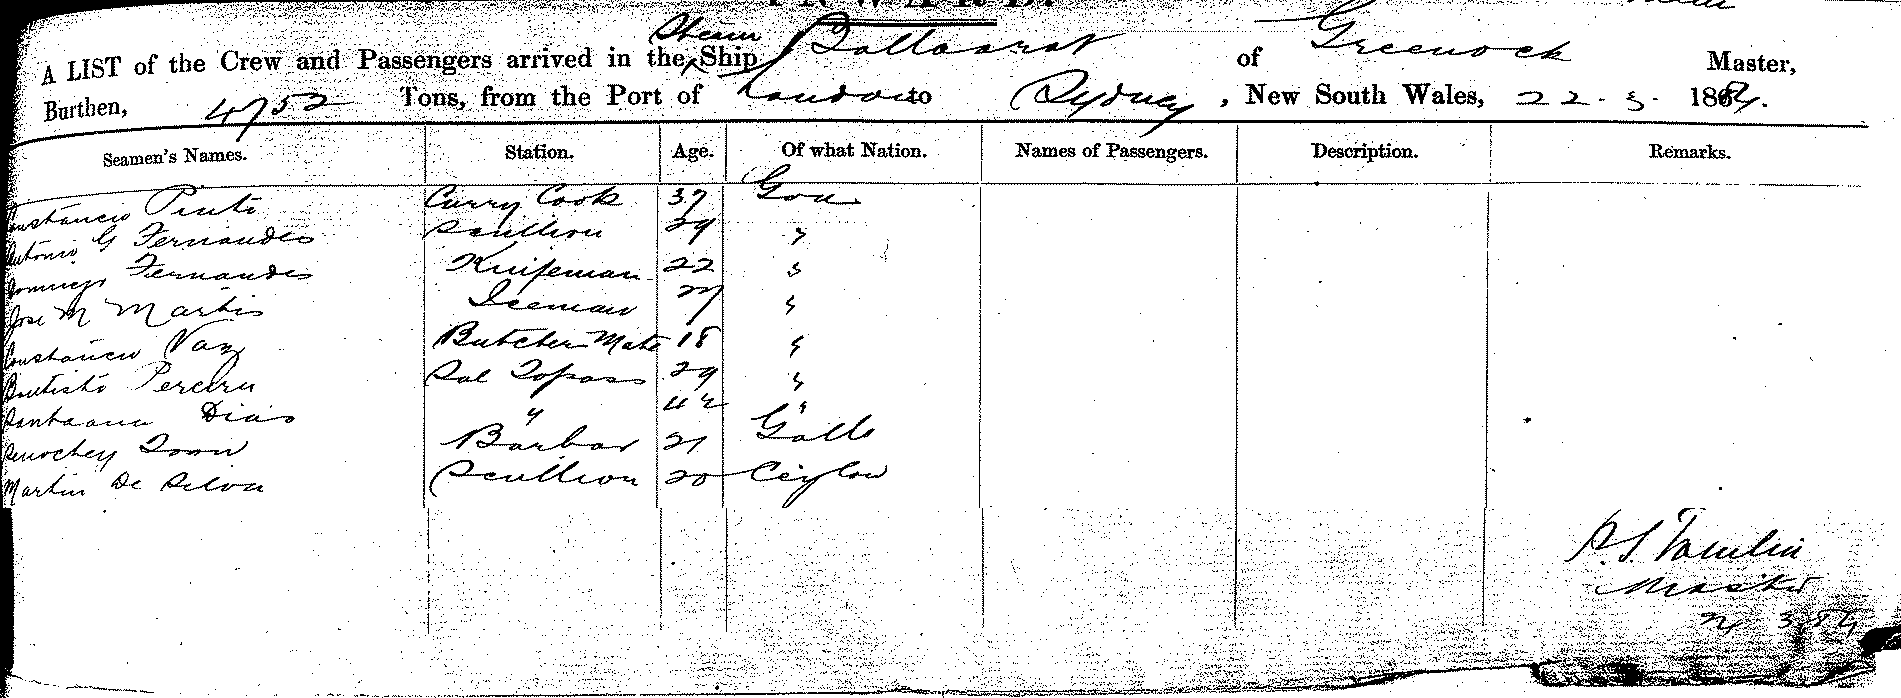 INWARD.
A LIST of the Crew and Passengers arrived in the Steam Ship Ballaarat of Greenock Master,
Burthen, 4752 Tons, from the Port of London to Sydney, New South Wales, 22.3.1884.
Seamen's Names. Station. Age. Of what Nation. Names of Passengers. Description. Remarks.
Constancio Pinto Curry Cook 37 Goa
Antonio G Fernandes Scullion 29 "
Domingo Fernandes Knifeman 22 "
Jose M Martis Iceman 27 "
Constancio Vaz Butcher Mate 18 "
Bautisto Pereira Sal Topass 29 "
Santaana Dias " 42 "
Barbar 21 Galle
Martin De Silva Scullion 20 Ceylon
P. S. Tomlin
Master
3 84